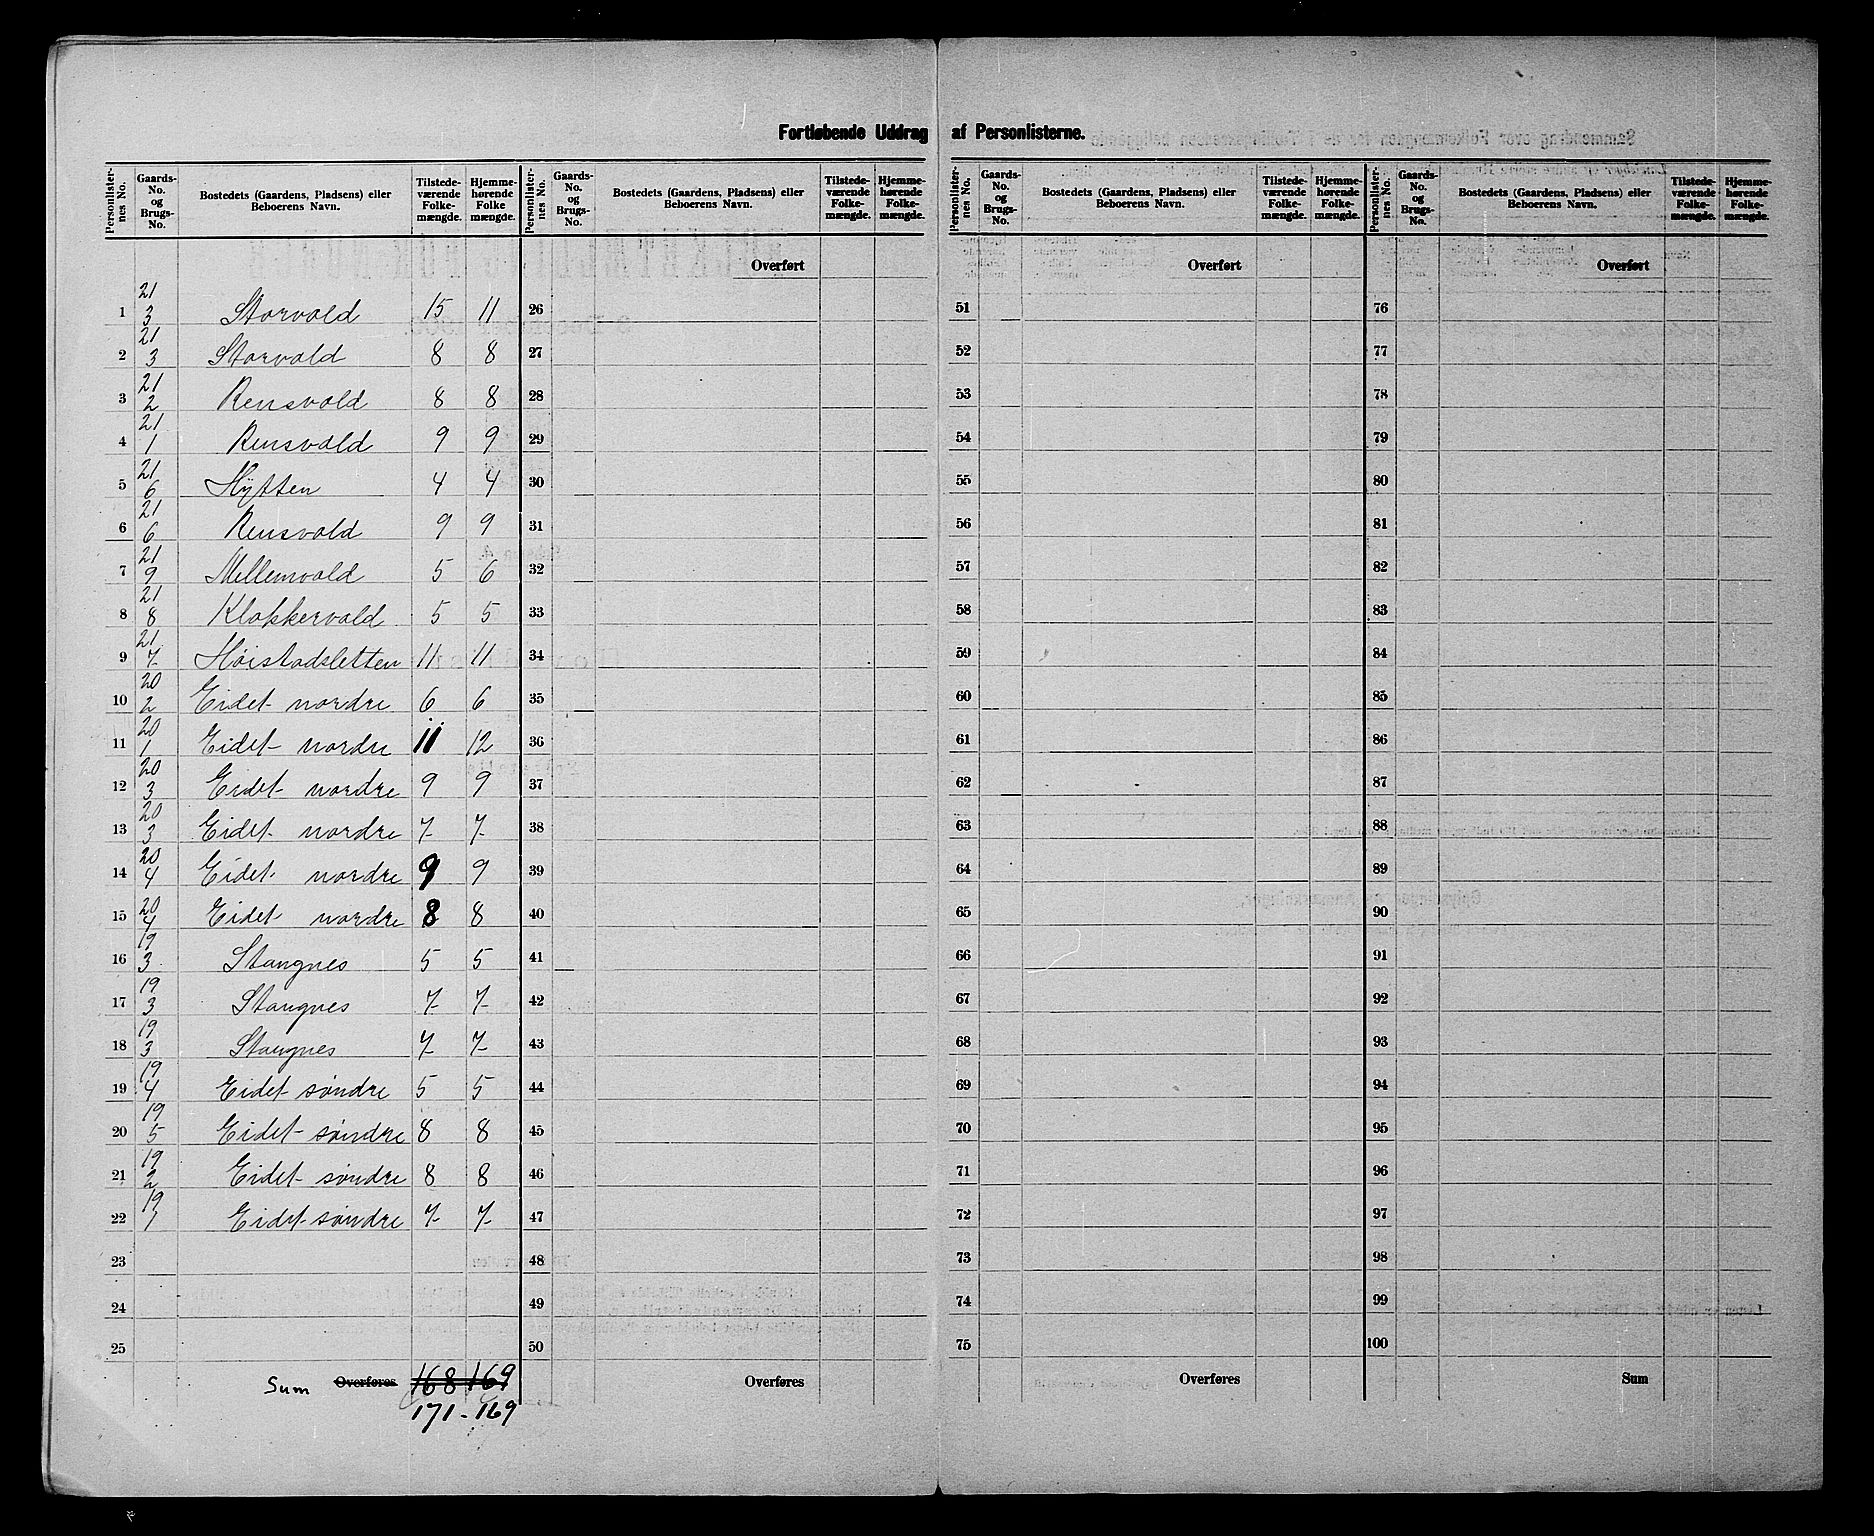 Fortløbende Uddrag af Personlisterne.
Personlisternes No. | Gaards-No. og Brugs-No. | Bostedets (Gaardens, Pladsens) eller Beboerens Navn. | Tilstedeværende Folkemængde. | Hjemmehørende Folkemængde.
1 21/3 Storvold 15 11
2 21/3 Storvold 8 8
3 21/2 Rensvold 8 8
4 21/1 Rensvold 9 9
5 21/6 Hÿtten 4 4
6 21/6 Rensvold 9 9
7 21/9 Mellemvold 5 6
8 21/8 Klokkervold 5 5
9 21/7 Høistadsletten 11 11
10 20/2 Eidet nordre 6 6
11 20/1 Eidet nordre 11 12
12 20/3 Eidet nordre 9 9
13 20/3 Eidet nordre 7 7
14 20/4 Eidet nordre 9 9
15 20/4 Eidet nordre 8 8
16 19/3 Stangnes 5 5
17 19/3 Stangnes 7 7
18 19/3 Stangnes 7 7
19 19/4 Eidet søndre 5 5
20 19/5 Eidet søndre 8 8
21 19/2 Eidet søndre 8 8
22 19/1 Eidet søndre 7 7
23
24
25
Sum Overføres 168 169
171 - 169
Personlisternes No. | Gaards-No. og Brugs-No. | Bostedets (Gaardens, Pladsens) eller Beboerens Navn. | Tilstedeværende Folkemængde. | Hjemmehørende Folkemængde.
Overført
26
27
28
29
30
31
32
33
34
35
36
37
38
39
40
41
42
43
44
45
46
47
48
49
50
Overføres
Personlisternes No. | Gaards-No. og Brugs-No. | Bostedets (Gaardens, Pladsens) eller Beboerens Navn. | Tilstedeværende Folkemængde. | Hjemmehørende Folkemængde.
Overført
51
52
53
54
55
56
57
58
59
60
61
62
63
64
65
66
67
68
69
70
71
72
73
74
75
Overføres
Personlisternes No. | Gaards-No. og Brugs-No. | Bostedets (Gaardens, Pladsens) eller Beboerens Navn. | Tilstedeværende Folkemængde. | Hjemmehørende Folkemængde.
Overført
76
77
78
79
80
81
82
83
84
85
86
87
88
89
90
91
92
93
94
95
96
97
98
99
100
Sum